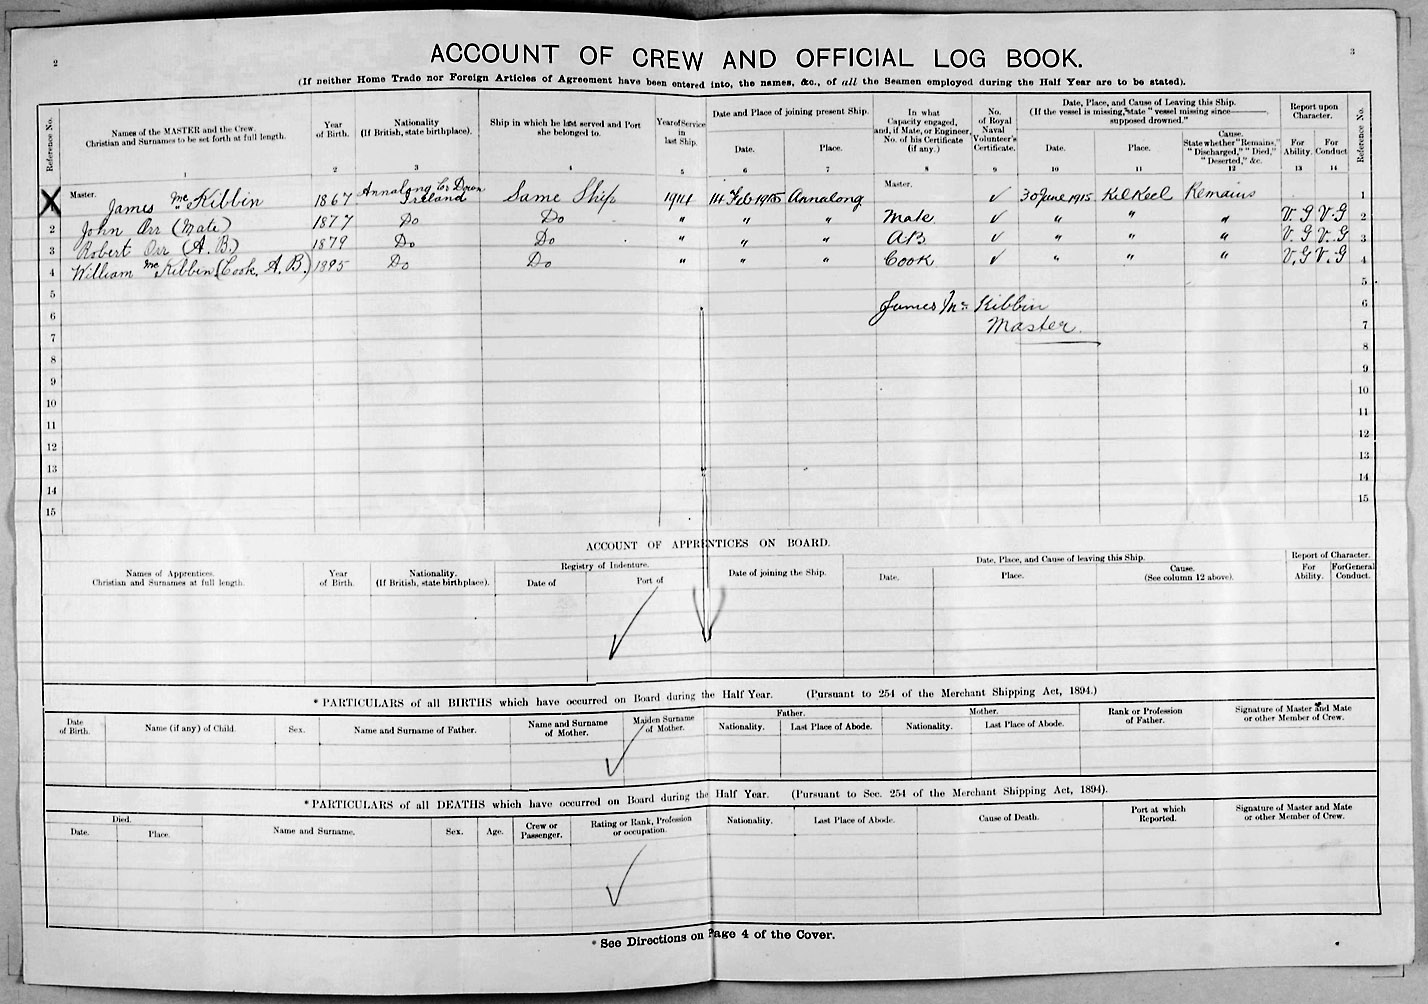 2
3
ACCOUNT OF CREW AND OFFICIAL LOG BOOK.
(If neither Home Trade nor Foreign Articles of Agreement have been entered into, the names, &c., of all the Seamen employed during the Half Year are to be stated).
Reference No.
Names of the MASTER and the Crew.
Christian and Surnames to be set forth at full length.
1
Year
of Birth.
2
Nationality
(If British, state birthplace).
3
Ship in which he last served and Port
she belonged to.
4
Year of Service
in
last Ship.
5
Date and Place of joining present Ship.
Date.
6
Place.
7
In what
Capacity engaged,
and, if Mate, or Engineer,
No. of his Certificate
(if any.)
8
No.
of Royal
Naval
Volunteer's
Certificate.
9
Date, Place, and Cause of Leaving this Ship.
(If the vessel is missing, "state" vessel missing since———,
supposed drowned."
Date.
10
Place.
11
Cause.
State whether "Remains,"
"Discharged," "Died,"
"Deserted," &c.
12
Report upon
Character.
For
Ability.
13
For
Conduct
14
Reference No.
X Master. James McKibbin 1867 Annalong Co Down Ireland Same Ship 1914 14 Feb 1915 Annalong Master. ✓ 30 June 1915 Kilkeel Remains 1
2 John Orr (Mate) 1877 Do Do " " " Mate ✓ " " " V.G V.G 2
3 Robert Orr (A.B.) 1879 Do Do " " " AB ✓ " " " V.G V.G 3
4 William McKibbin (Cook, A.B.) 1895 Do Do " " " Cook ✓ " " " V.G V.G 4
5 5
6 James Mc Kibbin 6
7 Master. 7
8 8
9 9
10 10
11 11
12 12
13 13
14 14
15 15
ACCOUNT OF APPRENTICES ON BOARD.
Names of Apprentices.
Christian and Surnames at full length.
Year
of Birth.
Nationality.
(If British, state birthplace).
Registry of Indenture.
Date of
Port of
Date of joining the Ship.
Date, Place, and Cause of leaving this Ship.
Date.
Place.
Cause.
(See column 12 above).
Report of Character.
For
Ability.
For General
Conduct.
* PARTICULARS of all BIRTHS which have occurred on Board during the Half Year. (Pursuant to 254 of the Merchant Shipping Act, 1894.)
Date
of Birth.
Name (if any) of Child.
Sex.
Name and Surname of Father.
Name and Surname
of Mother.
Maiden Surname
of Mother.
Father.
Nationality.
Last Place of Abode.
Mother.
Nationality.
Last Place of Abode.
Rank or Profession
of Father.
Signature of Master and Mate
or other Member of Crew.
* PARTICULARS of all DEATHS which have occurred on Board during the Half Year. (Pursuant to Sec. 254 of the Merchant Shipping Act, 1894).
Died.
Date.
Place.
Name and Surname.
Sex.
Age.
Crew or
Passenger.
Rating or Rank, Profession
or occupation.
Nationality.
Last Place of Abode.
Cause of Death.
Port at which
Reported.
Signature of Master and Mate
or other Member of Crew.
* See Directions on Page 4 of the Cover.